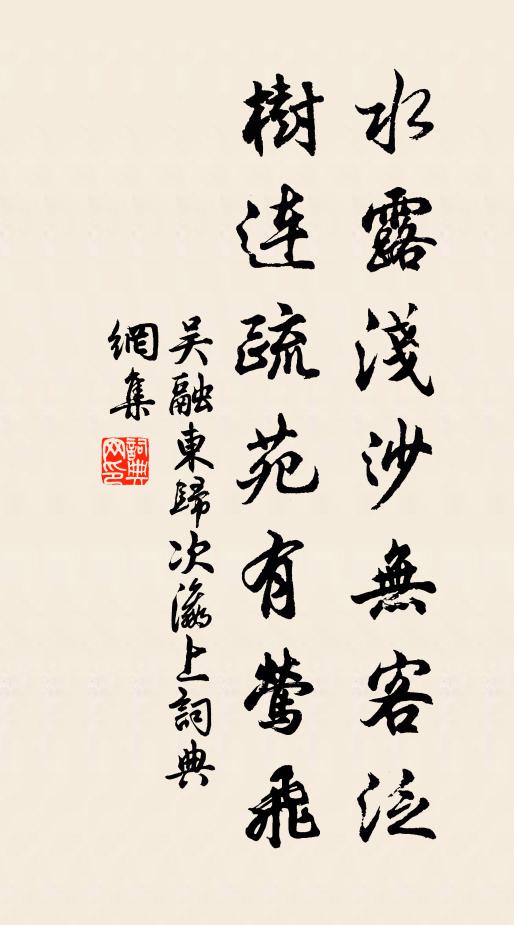 水露淺沙無客泛
樹連疏苑有鶯飛
吳融東歸次瀛上詞典
網集
詞典網印